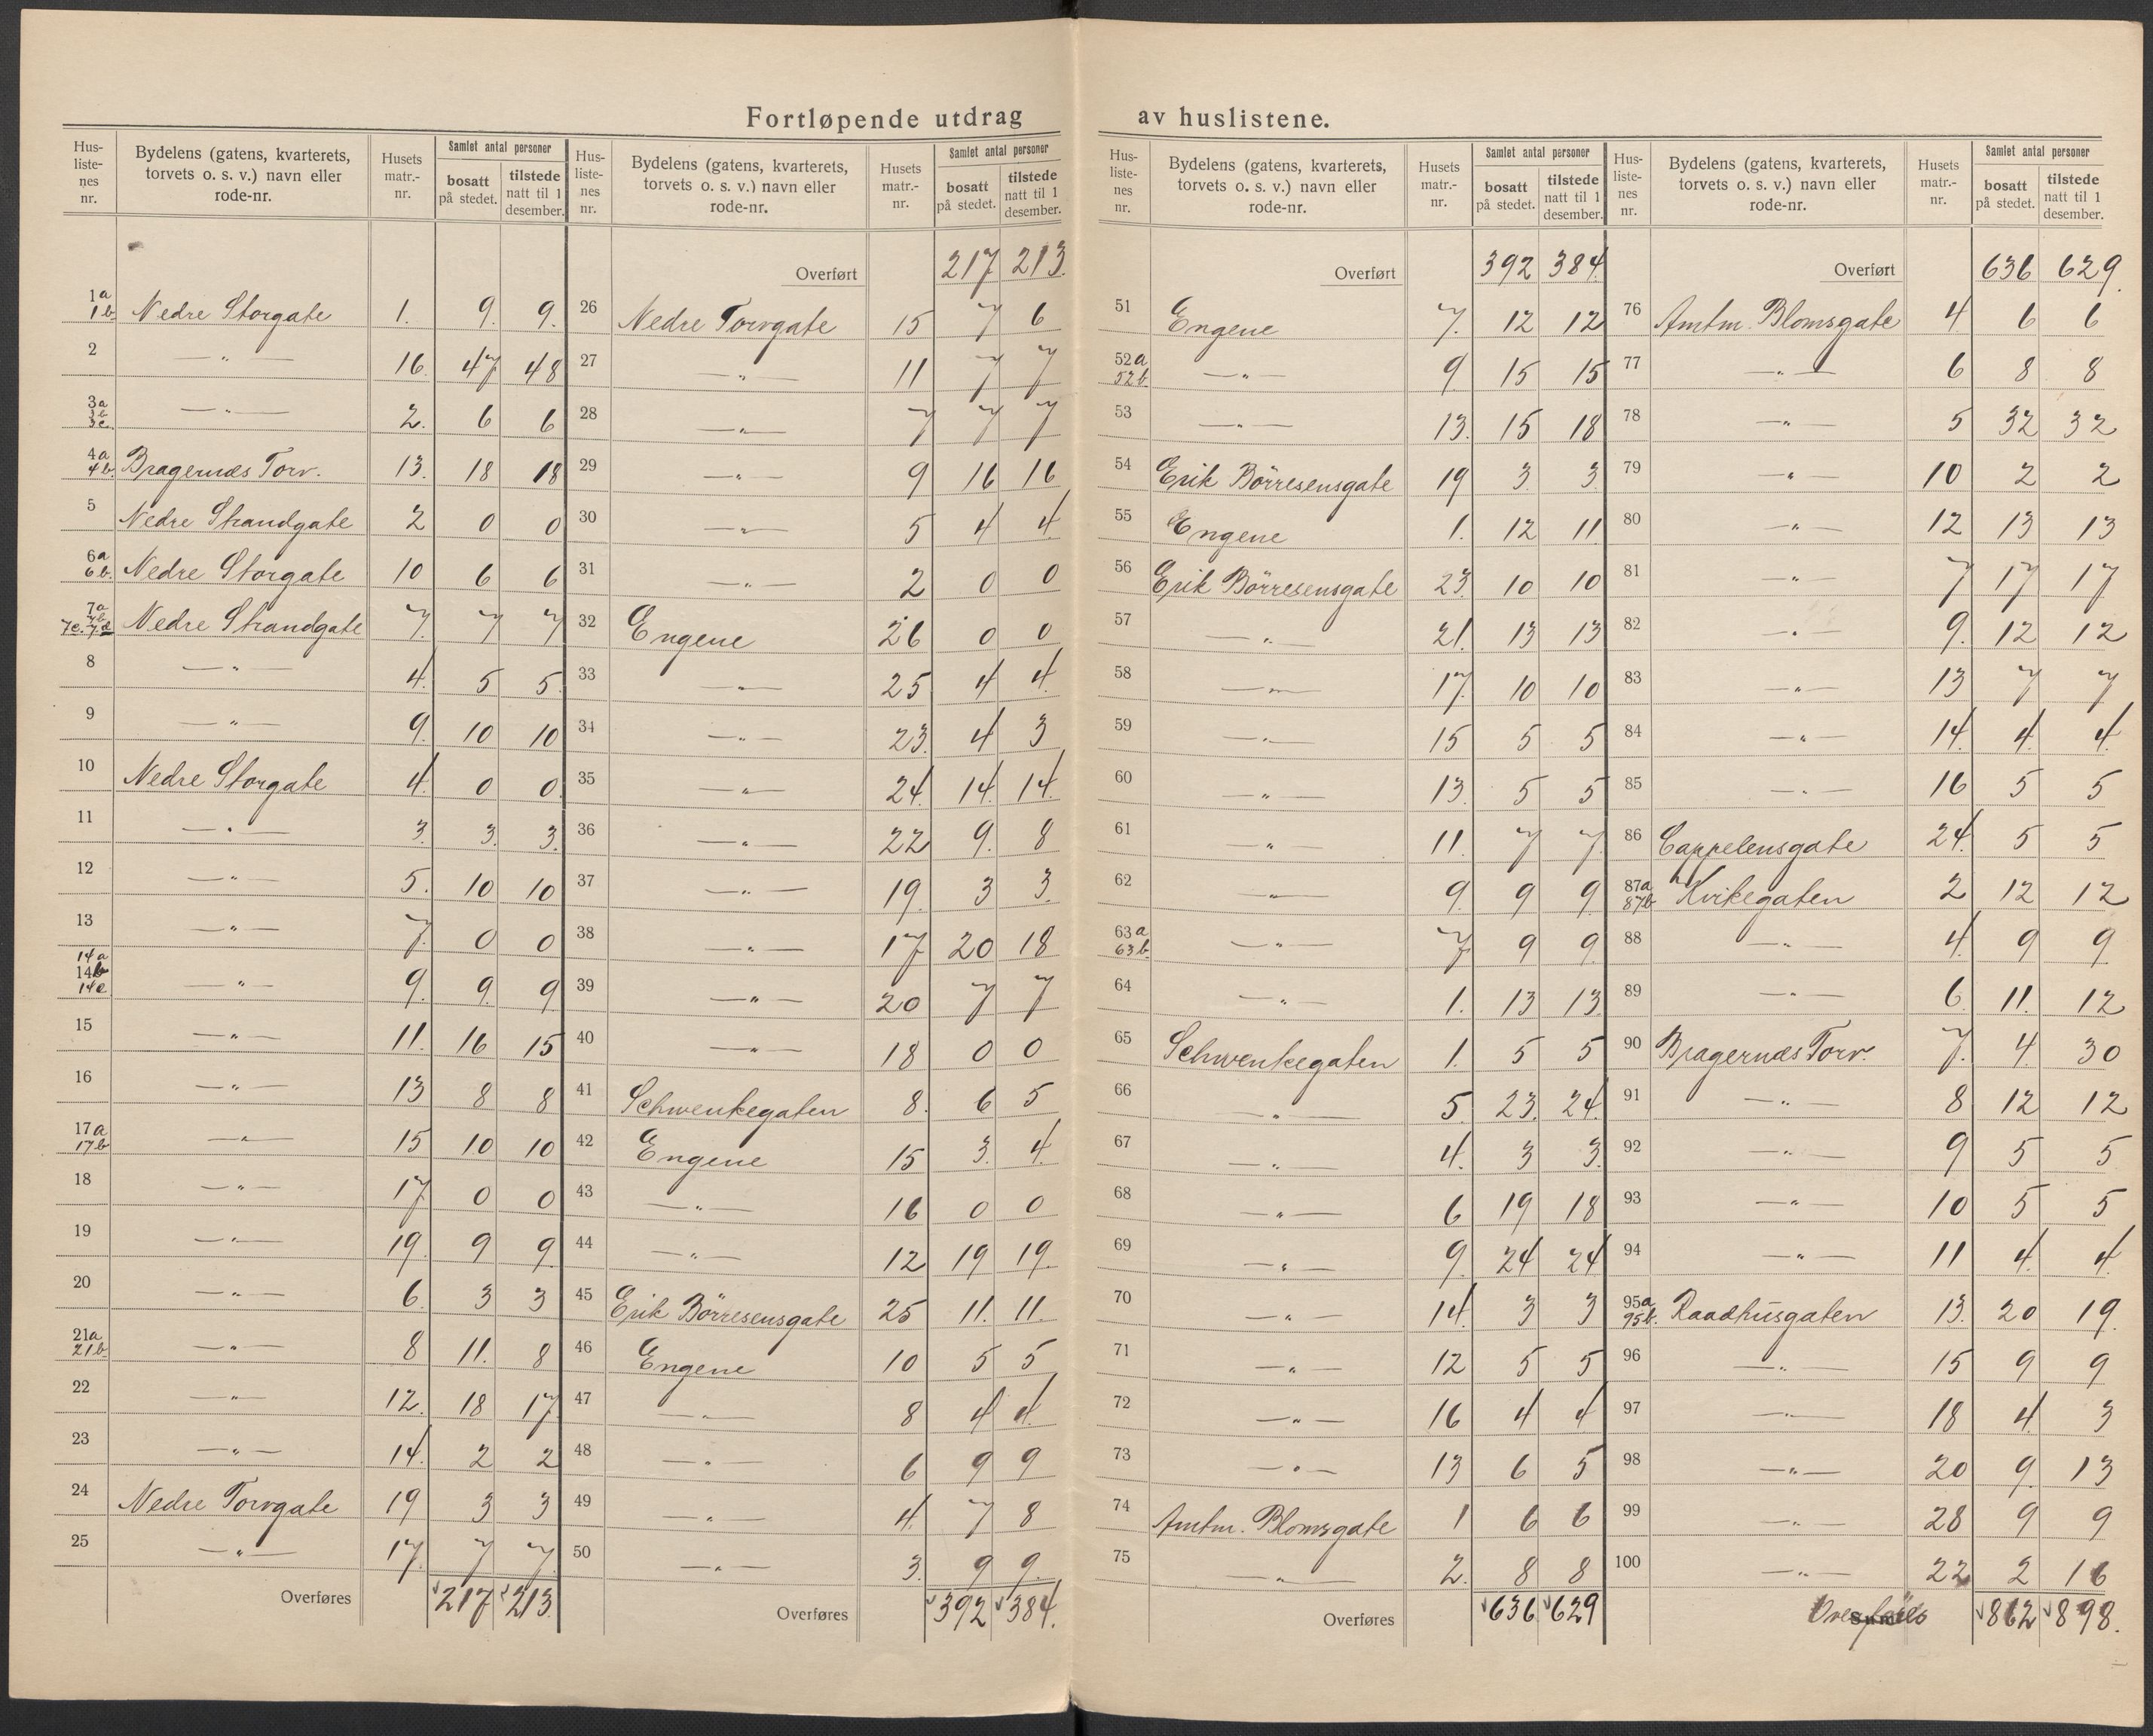 Fortløpende utdrag av huslistene.
Hus-liste-nes nr. Bydelens (gatens, kvarterets, torvets o. s. v.) navn eller rode-nr. Husets matr.-nr. Samlet antal personer bosatt på stedet. tilstede natt til 1 desember.
1a 1b Nedre Storgate 1. 9. 9.
2 —„— 16. 47 48
3a 3b 3c. —„— 2. 6 6
4a 4b Bragernæs Torv. 13. 18 18
5 Nedre Strandgate 2 0 0
6a 6b. Nedre Storgate 10 6 6
7a 7b 7c. 7d Nedre Strandgate 7. 7 7
8 —„— 4. 5 5.
9 —„— 9. 10 10
10 Nedre Storgate 4. 0 0.
11 —„— 3. 3. 3.
12 —„— 5. 10 10
13 —„— 7. 0 0
14a 14b 14c —„— 9. 9. 9.
15 —„— 11. 16 15
16 —„— 13 8 8
17a 17b —„— 15 10 10
18 —„— 17 0 0
19 —„— 19. 9 9.
20 —„— 6. 3 3
21a 21b. —„— 8 11. 8
22 —„— 12. 18 17
23 —„— 14. 2 2
24 Nedre Torvgate 19 3 3
25 —„— 17. 7 7.
Overføres 217 213.
Hus-liste-nes nr. Bydelens (gatens, kvarterets, torvets o. s. v.) navn eller rode-nr. Husets matr.-nr. Samlet antal personer bosatt på stedet. tilstede natt til 1 desember.
Overført 217 213.
26 Nedre Torvgate 15 7 6
27 —„— 11 7 7
28 —„— 7 7 7
29 —„— 9 16 16
30 —„— 5 4 4
31 —„— 2 0 0
32 Engene 26 0 0
33 —„— 25 4 4.
34 —„— 23. 4 3
35 —„— 24. 14. 14.
36 —„— 22 9. 8
37 —„— 19. 3 3.
38 —„— 17 20 18
39 —„— 20 7 7
40 —„— 18 0 0
41 Schwenkegaten 8. 6 5
42 Engene 15 3. 4.
43 —„— 16 0 0
44 —„— 12 19 19.
45 Erik Börresensgate 25 11. 11.
46 Engene 10 5 5
47 —„— 8 4 4.
48 —„— 6 9 9
49 —„— 4. 7 8
50 —„— 3. 9 9.
Overføres 392 384.
Hus-liste-nes nr. Bydelens (gatens, kvarterets, torvets o. s. v.) navn eller rode-nr. Husets matr.-nr. Samlet antal personer bosatt på stedet. tilstede natt til 1 desember.
Overført 392 384.
51 Engene 7. 12 12
52a 52b. —„— 9 15 15
53 —„— 13. 15 18
54 Erik Börresensgate 19 3. 3.
55 Engene 1. 12 11
56 Erik Börresensgate 23. 10 10
57 —„— 21. 13 13
58 —„— 17. 10 10
59 —„— 15 5 5
60 —„— 13. 5 5
61 —„— 11. 7 7.
62 —„— 9. 9 9
63a 63b. —„— 7 9 9.
64 —„— 1. 13 13
65 Schwenkegaten 1. 5 5
66 —„— 5. 23. 24.
67 —„— 4. 3 3.
68 —„— 6 19 18
69 —„— 9. 24 24
70 —„— 14. 3 3
71 —„— 12 5 5
72 —„— 16 4 4
73 —„— 13 6 5
74 Amtm. Blomsgate 1 6 6
75 —„— 2. 8 8
Overføres 636 629
Hus-liste-nes nr. Bydelens (gatens, kvarterets, torvets o. s. v.) navn eller rode-nr. Husets matr.-nr. Samlet antal personer bosatt på stedet. tilstede natt til 1 desember.
Overført 636 629.
76 Amtm. Blomsgate 4 6 6
77 —„— 6 8 8
78 —„— 5 32 32
79 —„— 10 2 2
80 —„— 12 13 13
81 —„— 7 17 17
82 —„— 9. 12 12
83 —„— 13 7 7
84 —„— 14. 4. 4.
85 —„— 16 5 5
86 Cappelensgate 24. 5 5
87a 87b Kvikegaten 2 12 12
88 —„— 4. 9 9
89 —„— 6. 11. 12
90 Bragernæs Torv. 7. 4. 30
91 —„— 8 12 12
92 —„— 9 5 5
93 —„— 10 5 5
94 —„— 11 4. 4.
95a 95b. Raadhusgaten 13. 20 19.
96 —„— 15 9 9
97 —„— 18 4. 3
98 —„— 20 9. 13
99 —„— 28 9 9
100 —„— 22 2 16
Overføres 862 898.